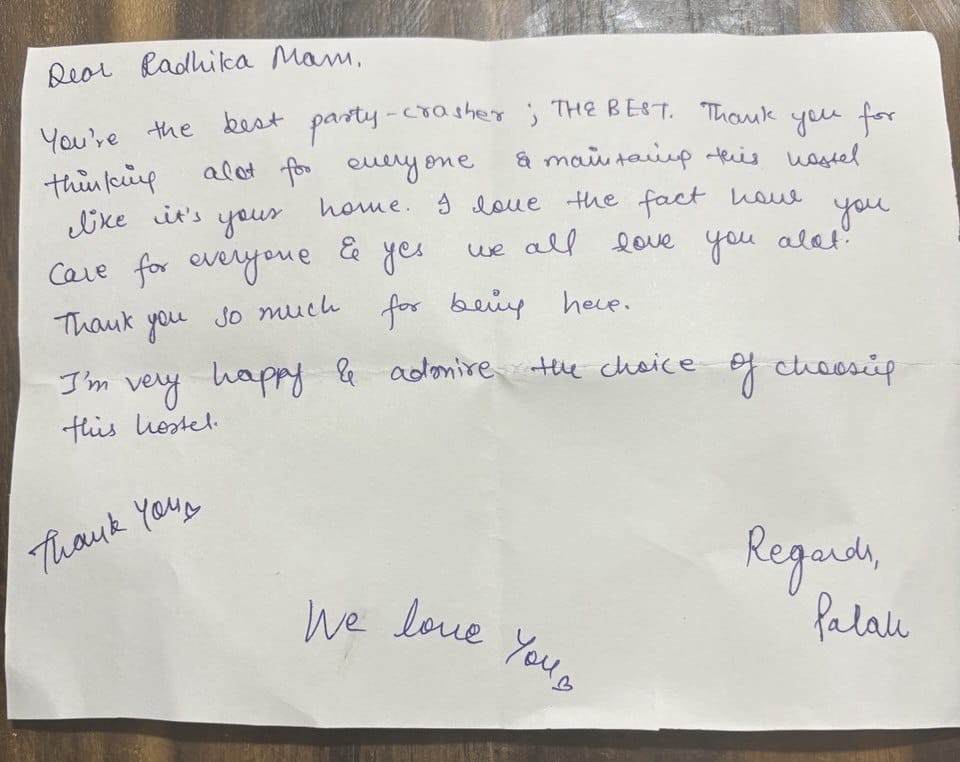 Dear Radhika Mam,
You're the best party-crasher ; THE BEST. Thank you for
thinking alot for everyone & maintaining this hostel
like it's your home. I love the fact how you
Care for everyone & yes we all love you alot.
Thank you so much for being here.
I'm very happy & admire the choice of choosing
this hostel.
Thank You
Regards,
Palak
We love You